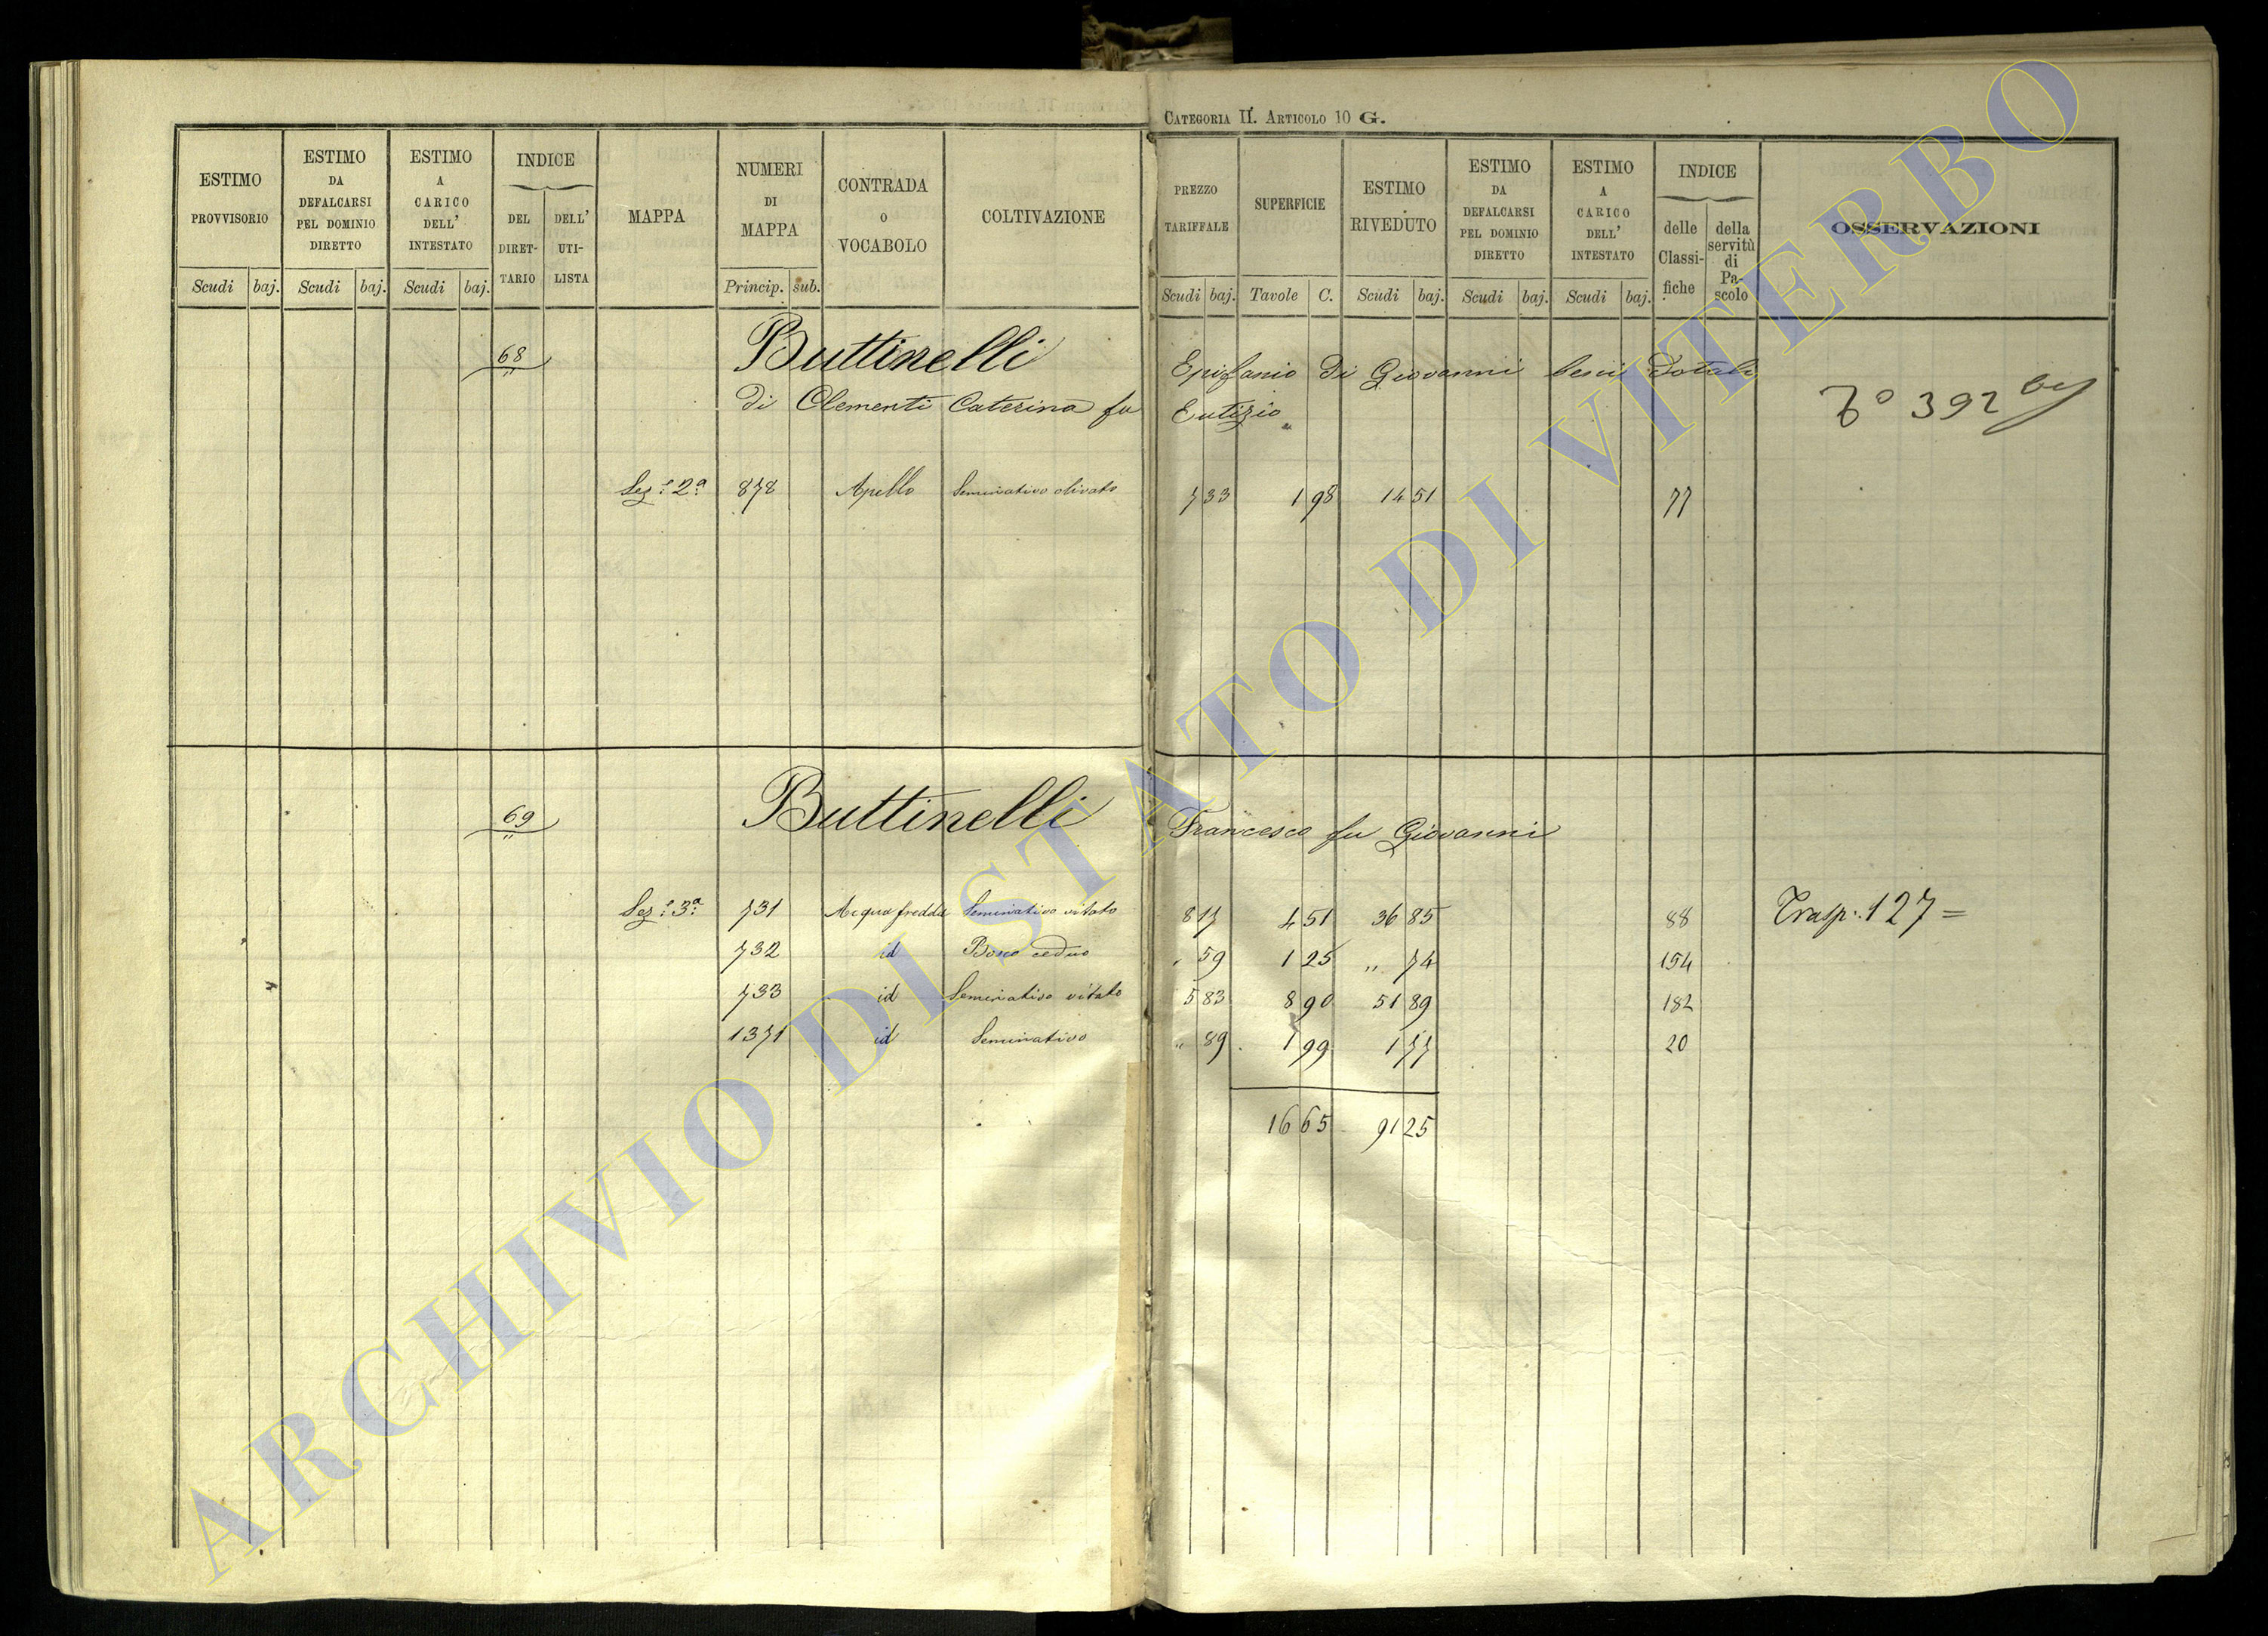 CATEGORIA II. ARTICOLO 10 G.
ESTIMO PROVVISORIO
ESTIMO DA DEFALCARSI PEL DOMINIO DIRETTO
ESTIMO A CARICO DELL' INTESTATO
INDICE
DEL DIRET-TARIO
DELL' UTI-LISTA
MAPPA
NUMERI DI MAPPA
CONTRADA O VOCABOLO
COLTIVAZIONE
PREZZO TARIFFALE
SUPERFICIE
ESTIMO RIVEDUTO
ESTIMO DA DEFALCARSI PEL DOMINIO DIRETTO
ESTIMO A CARICO DELL' INTESTATO
INDICE
delle Classi-fiche
della servitù di Pa-scolo
OSSERVAZIONI
Scudi baj. Scudi baj. Scudi baj. Princip. sub. Scudi baj. Tavole C. Scudi baj. Scudi baj. Scudi baj.
68 Buttinelli Epifanio di Giovanni beni Dotali
di Clementi Caterina fu Eutizio
392
Sez.e 2a 878 Apello Seminativo olivato 7 33 1 98 14 51 77
69 Buttinelli Francesco fu Giovanni
Sez.e 3a 731 Acqua fredda Seminativo vitato 8 17 4 51 36 85 88 Trasp. 127=
732 id Bosco ceduo " 59 1 25 " 74 154
733 id Seminativo vitato 5 83 8 90 51 89 182
1371 id Seminativo " 89 1 99 1 77 20
16 65 91 25
ARCHIVIO DI STATO DI VITERBO